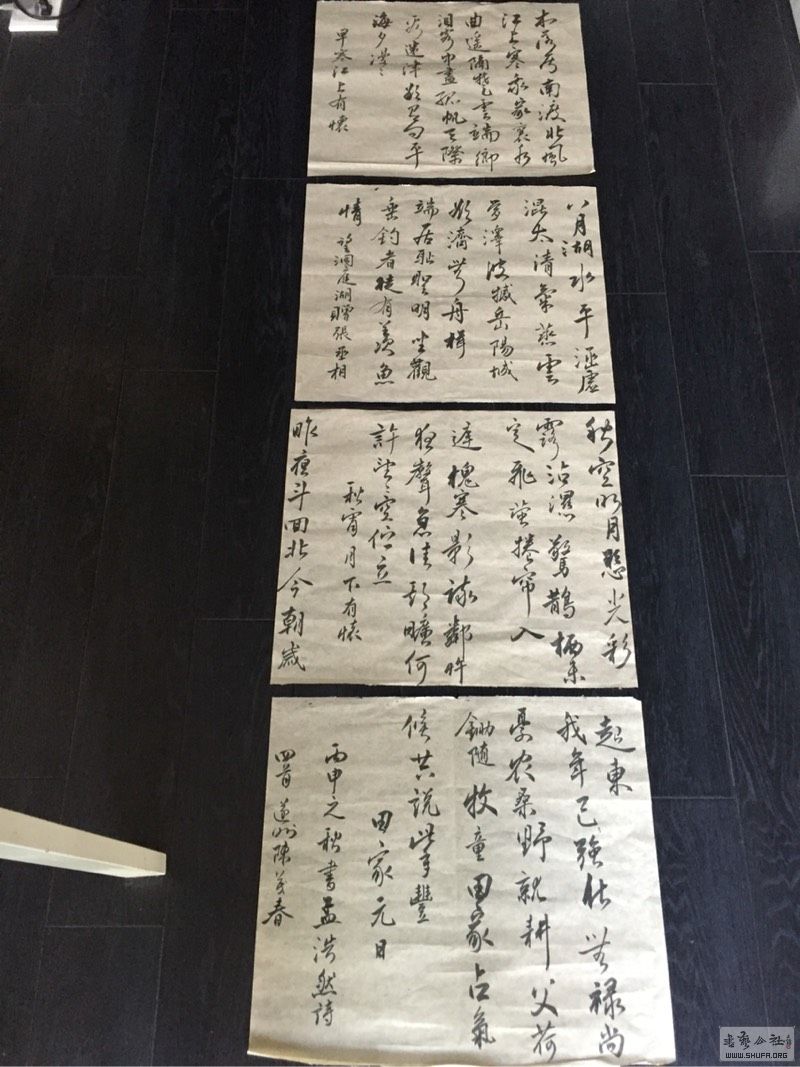 木落雁南渡北風
江上寒我家襄水
曲遥隔楚雲端鄉
泪客中盡孤帆天際
看迷津欲有問平
海夕漫〻
早寒江上有懷
八月湖水平涵虛
混太清氣蒸雲
夢澤波撼岳陽城
欲濟無舟楫
端居恥聖明坐觀
垂釣者徒有羨魚
情 望洞庭湖贈張丞相
秋空明月懸光彩
露沾濕驚鵲栖未
定飛螢捲帘入
庭槐寒影疎鄰杵
夜聲急佳期曠何
許望〻空佇立
秋宵月下有懷
昨夜斗回北今朝歲
起東
我年已強仕無祿尚
憂農桑野就耕父荷
鋤隨牧童田家占氣
候共説此年豐
田家元日
丙申之秋書孟浩然詩
四首 陳春
書藝公社
WWW.SHUFA.ORG